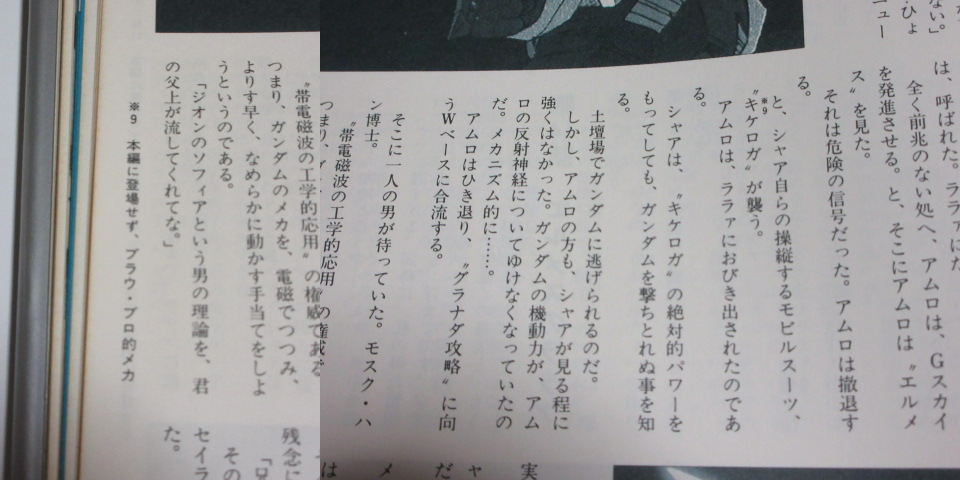 ない。」
ひょ
ニュー
は、呼ばれた。ララァにた
全く前兆のない処へ、アムロは、Gスカイ
を発進させる。と、そこにアムロは〝エルメ
ス〟を見た。
それは危険の信号だった。アムロは撤退す
る。
と、シャア自らの操縦するモビルスーツ、
※9
〝キケロガ〟が襲う。
アムロは、ララァにおびき出されたのであ
る。
シャアは、〝キケロガ〟の絶対的パワーを
もってしても、ガンダムを撃ちとれぬ事を知
る。
土壇場でガンダムに逃げられるのだ。
しかし、アムロの方も、シャアが見る程に
強くはなかった。ガンダムの機動力が、アム
ロの反射神経についてゆけなくなっていたの
だ。メカニズム的に……。
アムロはひき退り、〝グラナダ攻略〟に向
うWベースに合流する。
そこに一人の男が待っていた。モスク・ハ
ン博士。
〝帯電磁波の工学的応用
つまり、
〝帯電磁波の工学的応用〟の権威である
つまり、ガンダムのメカを、電磁でつつみ、
よりす早く、なめらかに動かす手当てをしよ
うというのである。
「ジオンのソフィアという男の理論を、君
の父上が流してくれてな。」
※9 本編に登場せず、ブラウ・ブロ的メカ
実
ャ
だ
メ
は
残念に
その
セイラ
た。